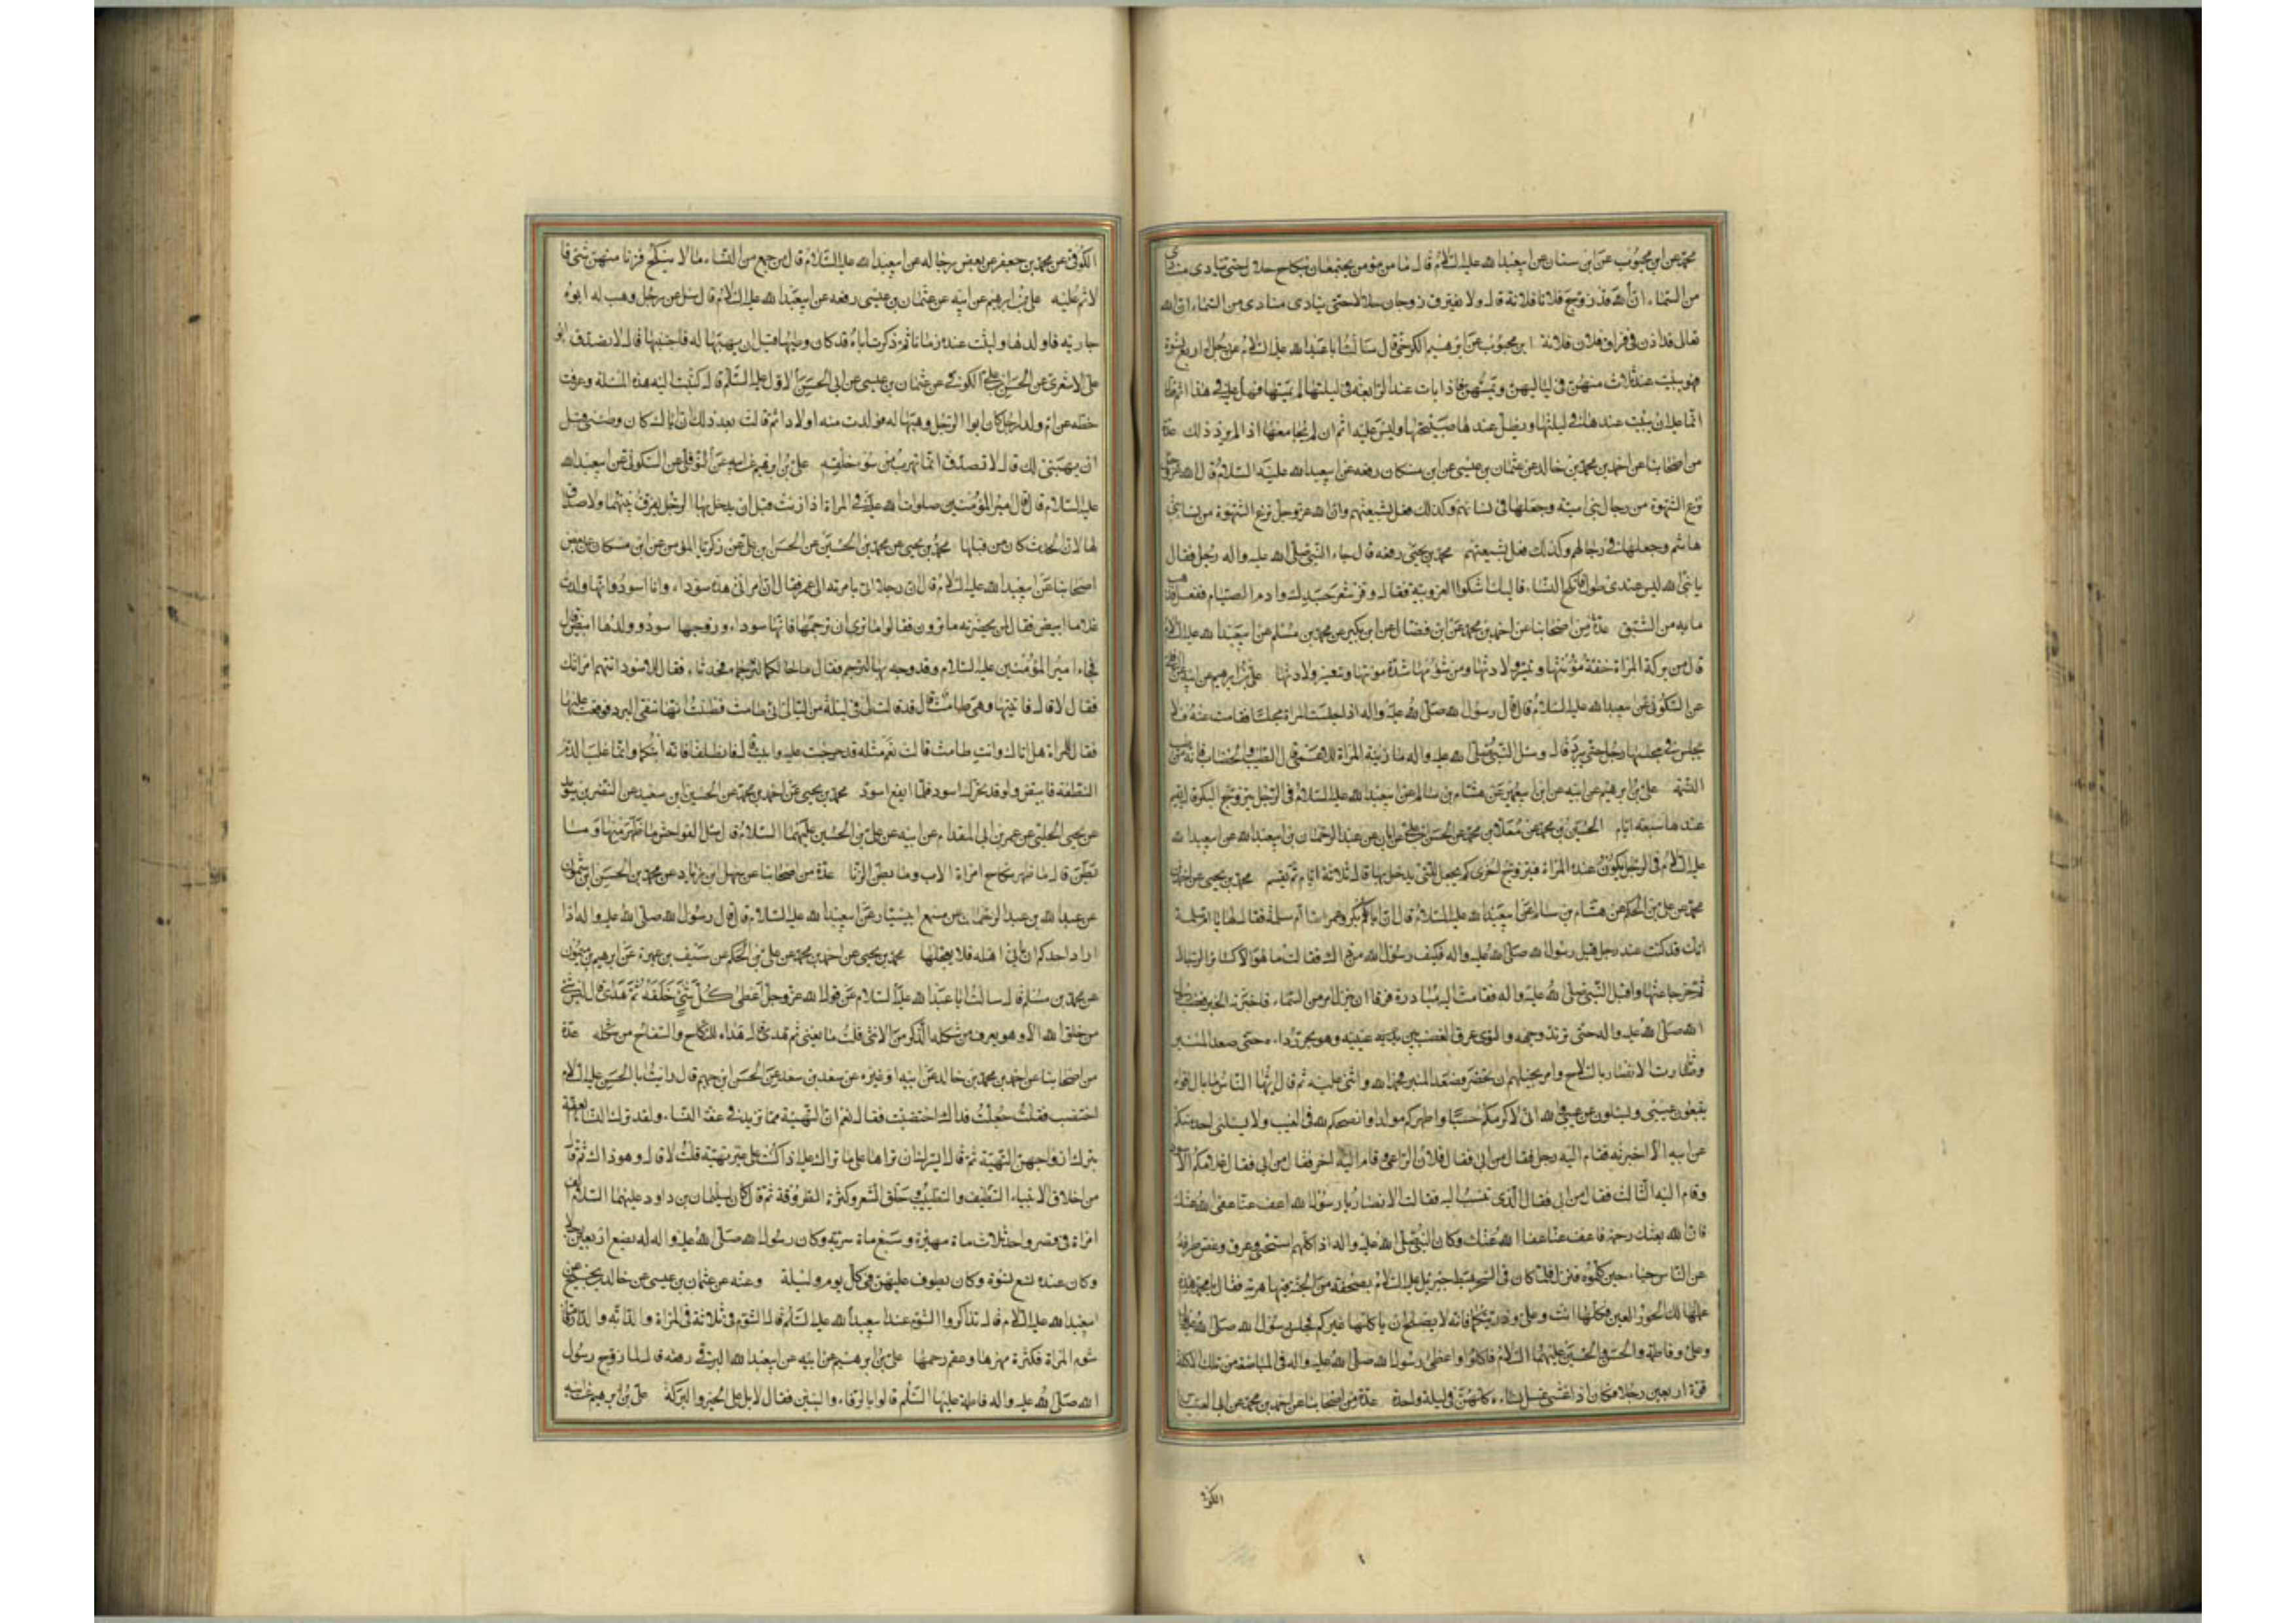 محمد عن ابن محبوب عن ابن سنان عن ابيعبدالله عليه السلام قال ما من مؤمن يجتمعان بنكاح حلال حتى ينادى مناد
من السماء ان الله قد زوج فلانا فلانة قال ولا يفترق زوجان حلالا حتى ينادى منادى من السماء ان الله
تعالى قد اذن فى فراق فلان فلانة ابن محبوب عن ابرهيم الكرخى قال سالت ابا عبدالله عليه السلام عن رجل له اربع نسوة
فهو يبيت عند ثلاث منهن فى لياليهن ويمسهن فاذا بات عند الرابعة فى ليلتها لم يمسها فهل عليه فى هذا اثم قال
انما عليه ان يبيت عندها فى ليلتها ويظل عندها صبيحتها وليس عليه اثم ان لم يجامعها اذا لم يرد ذلك عدة
من اصحابنا عن احمد بن محمد بن خالد عن عثمان بن عيسى عن ابن مسكان رفعه عن ابيعبدالله عليه السلام قال الله عز وجل
نزع الشهوة من رجال بنى امية وجعلها فى نسائهم وكذلك فعل بشيعتهم وان الله عز وجل نزع الشهوة من نساء بنى
هاشم وجعلها فى رجالهم وكذلك فعل بشيعتهم محمد بن يحيى رفعه قال جاء النبى صلى الله عليه واله رجل فقال
يا نبى الله ليس عندى طول فانكح النساء فاليك اشكوا العزوبية فقال وفر شعر جسدك وادم الصيام ففعل فذهب
ما به من الشبق عدة من اصحابنا عن احمد بن محمد عن ابن فضال عن ابن بكير عن محمد بن مسلم عن ابيعبدالله عليه السلام
قال من بركة المراة خفة مؤنتها وتيسر ولادتها ومن شؤمها شدة مونتها وتعسر ولادتها على بن ابرهيم عن ابيه عن النوفلى
عن السكونى عن ابيعبدالله عليه السلام قال قال رسول الله صلى الله عليه واله اذا جلست المراة مجلسا فقامت عنه فلا
يجلس فى مجلسها رجل حتى يبرد قال وسئل النبى صلى الله عليه واله ما زينة المراة للاعمى قال الطيب والخضاب فانه من طيب
النسمة على بن ابرهيم عن ابيه عن ابن ابيعمير عن هشام بن سالم عن ابيعبدالله عليه السلام فى الرجل يتزوج البكر قال يقيم
عندها سبعة ايام الحسين بن محمد عن معلا بن محمد عن الحسن بن على عن ابان عن عبد الرحمان بن ابيعبدالله عن ابيعبدالله
عليه السلام فى الرجل يكون عنده المراة فيتزوج اخرى كم يجعل للتى يدخل بها قال ثلاثة ايام ثم يقسم محمد بن يحيى عن احمد بن
محمد عن على بن الحكم عن هشام بن سالم عن ابيعبدالله عليه السلام قال ان ابا بكر وعمر اتيا ام سلمة فقالا لها يا ام سلمة
انك قد كنت عند رجل قبل رسول الله صلى الله عليه واله فكيف رسول الله من ذاك فقالت ما هو الا كسائر الرجال
ثم خرجا عنها واقبل النبى صلى الله عليه واله فقامت اليه مبادرة فرقا ان ينزل امر من السماء فاخبرته الخبر فغضب رسول
الله صلى الله عليه واله حتى تربد وجهه والتوى عرق الغضب بين عينيه وهو يجر رداءه حتى صعد المنبر
وبادرت الانصار بالسلاح وامر بخيلهم ان تحضر فصعد المنبر فحمد الله واثنى عليه ثم قال ايها الناس ما بال اقوام
يتبعون عيبتى ويسئلون عن غيبى والله انى لاكرمكم حسبا واطهركم مولدا وانصحكم لله فى الغيب ولا يسئلنى احد منكم
عن ابيه الا اخبرته فقام اليه رجل فقال من ابى فقال فلان الراعى وقام اليه اخر فقال من ابى فقال غلامكم الاسود
وقام اليه الثالث فقال من ابى فقال الذى تنسب اليه فقالت الانصار يا رسول الله اعف عنا عفى الله عنك
فان الله بعثك رحمة فاعف عنا عفا الله عنك وكان النبى صلى الله عليه واله اذا كلم استحى وعرق وغض طرفه
عن الناس حياء حين كلموه فنزل فلما كان فى السحر هبط جبرئيل عليه السلام بصحفة من الجنة فيها هريسة فقال يا محمد هذه
عملها لك الحور العين فكلها انت وعلى وذريتكما فانه لا يصلح ان ياكلها غيركم فجلس رسول الله صلى الله عليه واله
وعلى وفاطمة والحسن والحسين عليهم السلام فاكلوا واعطى رسول الله صلى الله عليه واله فى المباضعة من تلك الاكلة
قوة اربعين رجلا فكان اذا شاء غشى نساءه كلهن فى ليلة واحدة عدة من اصحابنا عن احمد بن محمد عن ابى العباس
الكوفى
الكوفى عن محمد بن جعفر عن بعض رجاله عن ابيعبدالله عليه السلام قال من جمع من النساء ما لا ينكح فزنا منهن شئ فا
لاثم عليه على بن ابرهيم عن ابيه عن عثمان بن عيسى رفعه عن ابيعبدالله عليه السلام قال سئل عن رجل وهب له ابوه
جارية فاولدها ولبثت عنده زمانا ثم ذكرت ان اباه قد كان وطيها قبل ان يهبها له فاجتنبها قال لا تصدق ابو
على الاشعرى عن الحسن بن على الكوفى عن عثمان بن عيسى عن ابى الحسن الاول عليه السلام قال كتبت اليه هذه المسئلة وعرفت
خطه عن ام ولد لرجل كان ابوا الرجل وهبها له فولدت منه اولادا ثم قالت بعد ذلك ان اباك كان وطئنى قبل
ان يهبنى لك قال لا تصدق انما تهرب من سوء خلقه على بن ابرهيم عن ابيه عن النوفلى عن السكونى عن ابيعبدالله
عليه السلام قال قال امير المؤمنين صلوات الله عليه فى المراة اذا زنت قبل ان يدخل بها الرجل يفرق بينهما ولا صداق
لها لان الحدث كان من قبلها محمد بن يحيى عن محمد بن الحسين عن الحسن بن على عن زكريا المؤمن عن ابن مسكان عن بعض
اصحابنا عن ابيعبدالله عليه السلام قال ان رجلا اتى بامرته الى عمر فقال ان امراتى هذه سوداء وانا اسود وانها ولدت
غلاما ابيض فقال لمن بحضرته ما ترون فقالوا ما ترى ان ترجمها فانها سوداء وزوجها اسود وولدها ابيض قال
فجاء امير المؤمنين عليه السلام وقد وجه بها لترجم فقال ما حالكما فحدثاه فقال للاسود اتتهم امراتك
فقال لا قال فاتيتها وهى طامث قال قد قالت لى فى ليلة من الليالى انى طامث فظننت انها تتقى البرد فوقعت عليها
فقال للمراة هل اتاك وانت طامث قالت نعم سله قد حرجت عليه وابيت قال فانطلقا فانه ابنكما وانما غلب الدم
النطفة فابيض ولو قد تحرك اسود فلما ايفع اسود محمد بن يحيى عن احمد بن محمد عن الحسين بن سعيد عن النضر بن سويد
عن يحيى الحلبى عن عمرو بن ابى المقدام عن ابيه عن على بن الحسين عليهما السلام قال سئل الفواحش ما ظهر منها وما
بطن قال ما ظهر نكاح امراة الاب وما بطن الزنا عدة من اصحابنا عن سهل ابن زياد عن محمد بن الحسن ابن شمون
عن عبد الله بن عبد الرحمان عن مسمع ابيسيار عن ابيعبدالله عليه السلام قال قال رسول الله صلى الله عليه واله اذا
اراد احدكم ان ياتى اهله فلا يعجلها محمد بن يحيى عن احمد بن محمد عن على بن الحكم عن سيف بن عميرة عن ابرهيم بن ميمون
عن محمد بن مسلم قال سالت ابا عبدالله عليه السلام عن قول الله عز وجل اعطى كل شئ خلقه ثم هدى قال ليس شئ
من خلق الله الا وهو يعرف من شكله الذكر من الانثى قلت ما يعنى ثم هدى قال هداه للنكاح والسفاح من شكله عدة
من اصحابنا عن احمد بن محمد بن خالد عن ابيه او غيره عن سعد بن سعد عن الحسن ابن جهم قال رايت ابا الحسن عليه السلام
اختضب فقلت جعلت فداك اختضبت فقال نعم ان التهيئة مما تزيد فى عفة النساء ولقد ترك النساء العفة
بترك ازواجهن التهيئة ثم قال ايسرك ان تراها على ما تراك عليه اذا كنت على غير تهيئة قلت لا قال وهو ذاك ثم قال
من اخلاق الانبياء التنظيف والتطيب وحلق الشعر وكثرة الطروقة ثم قال كان لسليمان بن داود عليهما السلام الف
امراة فى قصر واحد ثلاث ماة مهيرة وسبع ماة سرية وكان رسول الله صلى الله عليه واله له بضع اربعين رجلا
وكان عنده تسع نسوة وكان يطوف عليهن فى كل يوم وليلة وعنه عن عثمان بن عيسى عن خالد بن نجيح عن
ابيعبدالله عليه السلام قال تذاكروا الشوم عند ابيعبدالله عليه السلام قال الشوم فى ثلاثة فى المراة والدابة والدار فاما
شوم المراة فكثرة مهرها وعقم رحمها على بن ابرهيم عن ابيه عن ابيعبدالله البرقى رفعه قال لما زوج رسول
الله صلى الله عليه واله فاطمة عليها السلم قالوا بالرفاء والبنين فقال لا بل على الخير والبركة على بن ابرهيم عن ابيه